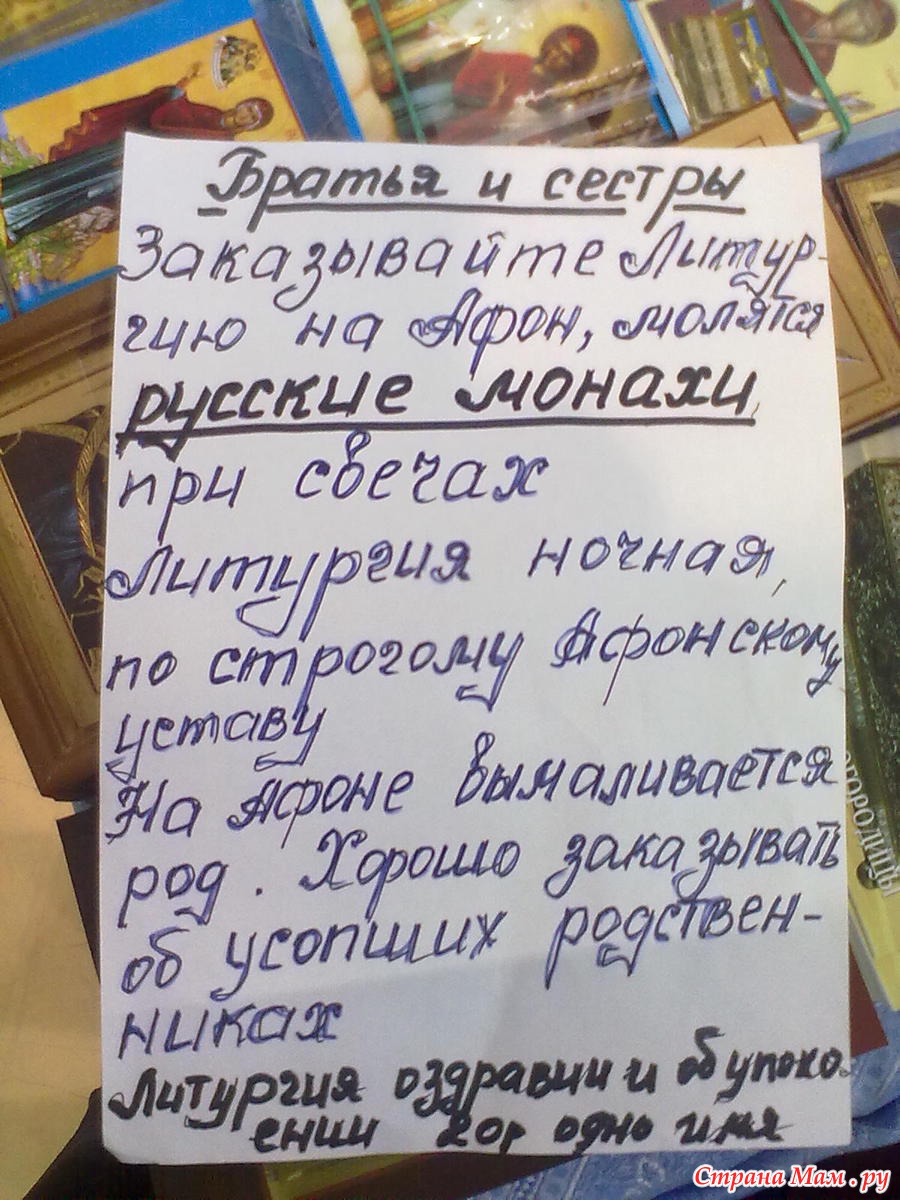 Братья и сестры
Заказывайте Литур-
гию на Афон, молятся
русские монахи,
при свечах
Литургия ночная,
по строгому Афонскому
уставу
На Афоне вымаливается
род. Хорошо заказывать
об усопших родствен-
никах
Литургия оздравии и об упоко
ении 20р одно имя
ОГОРОДИЦЫ
Страна Мам.ру